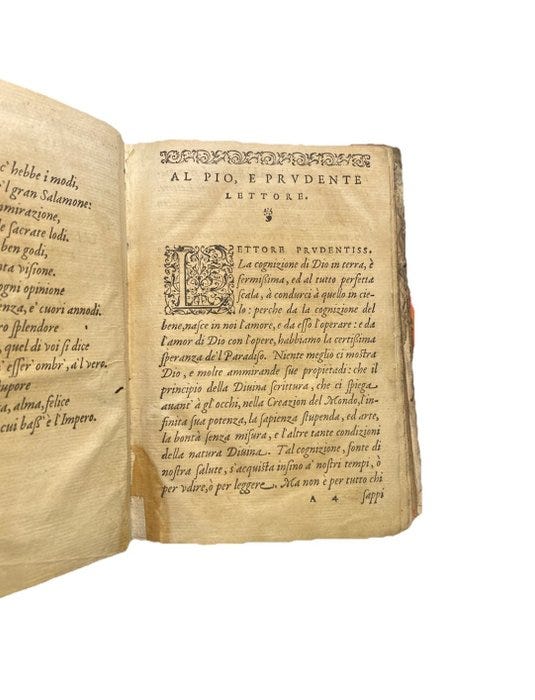 c' hebbe i modi,
'l gran Salamone:
mmirazione,
le sacrate lodi.
ben godi,
nta visione.
ogni opinione
enza, e' cuori annodi.
ro splendore
, quel di voi si dice
esser' ombr', a'l vero.
tupore
ta, alma, felice
cui bass' è l'Impero.
AL PIO, E PRVDENTE
LETTORE.
LETTORE PRVDENTISS.
La cognizione di Dio in terra, è
fermissima, ed al tutto perfetta
scala, à condurci à quello in cie-
lo: perche da la cognizione del
bene, nasce in noi l'amore, e da esso l'operare: e da
l'amor di Dio con l'opere, habbiamo la certissima
speranza de'l Paradiso. Niente meglio ci mostra
Dio, e molte ammirande sue propietadi: che il
principio della Diuina scrittura, che ci spiega
auant' à gl' occhi, nella Creazion del Mondo, l'in-
finita sua potenza, la sapienza stupenda, ed arte,
la bontà senza misura, e l'altre tante condizioni
della natura Diuina. Tal cognizione, fonte di
nostra salute, s'acquista insino a' nostri tempi, ò
per vdire, ò per leggere. Ma non è per tutto chi
A 4 sappi